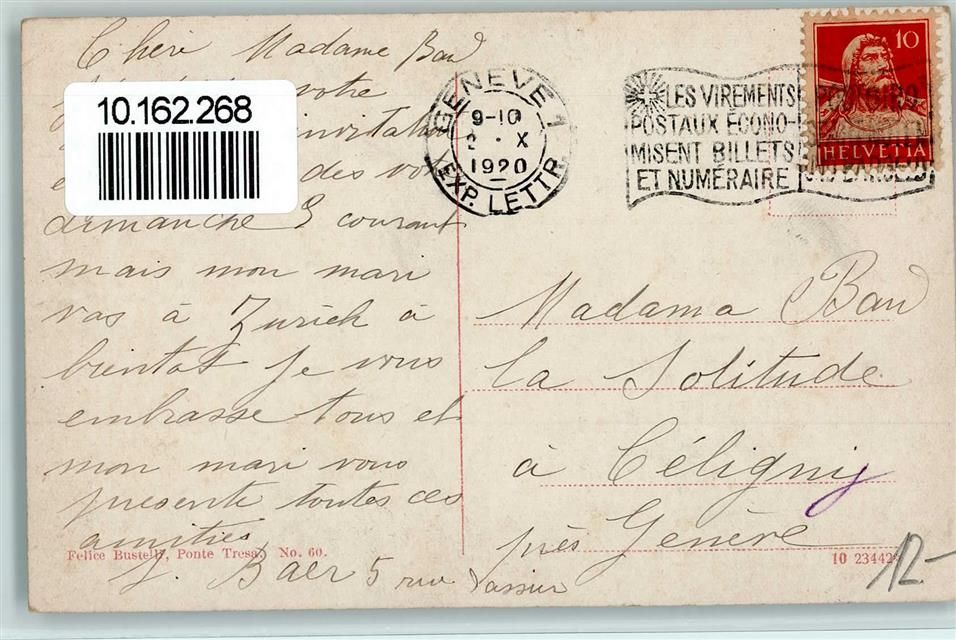 Chère Madame Bau
votre
10.162.268
invitation
des vot
dimanche 3 courant
mais mon mari
vas à Zürich à
bientot je vous
embrasse tous et
mon mari vous
presente toutes ces
amities
J. Baer 5 rue
Felice Bustelli, Ponte Tresa. No. 60.
GENÈVE 1
9-10
2 · X
1920
EXP. LETTR.
LES VIREMENTS
POSTAUX ÉCONO-
MISENT BILLETS
ET NUMÉRAIRE
10
HELVETIA
Madame Bau
La Solitude
à Céligny
près Genève
10 23442
12.-